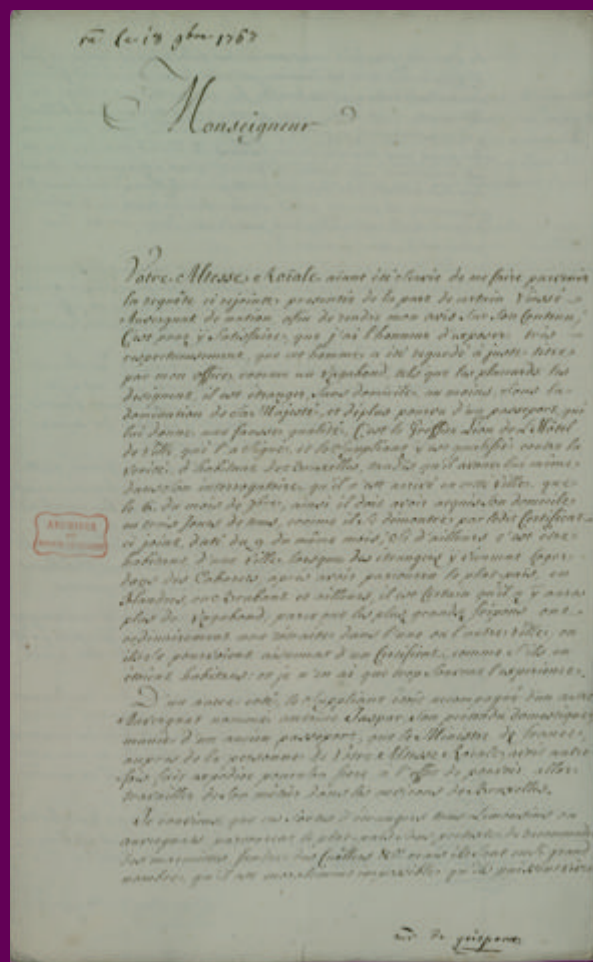 le 18 9bre 1767
Monseigneur
Votre Altesse Roïale aiant été servie de me faire parvenir
la requête ci rejointe presentée de la part de certain
Auvergnat de nation afin de rendre mon avis sur son Contenu,
C'est pour y satisfaire, que j'ai l'honneur d'exposer très
respectueusement, que cet homme a été regardé à juste titre
par mon office comme un vagabond, tels que les placards les
designent, il est étranger, sans domicile, au moins, sous la
domination de Sa Majesté, et déplus pourvu d'un passeport, qui
lui donne une fausse qualité. C'est le Greffier de L'Hôtel
de Ville, qui l'a signé, et le Suppliant y est qualifié contre la
verité, d'habitant de Bruxelles, tandis qu'il avoue lui même
dans son interrogatoire, qu'il n'est arrivé en cette ville, que
le 6. du mois de 7bre, ainsi il doit avoir acquis son domicile
en trois jours de tems, comme il se démontre par ledit Certificat
ci joint, daté du 9 du même mois, si d'ailleurs c'est être
habitant d'une Ville, lorsque des étrangers y viennent loger
dans des Cabarets, après avoir parcouru le plat païs, en
Flandres, en Brabant et ailleurs, il est Certain qu'il n'y aura
plus de vagabond, parce que les plus grands fripons ont
ordinairement une retraite dans l'une ou l'autre ville, ou
ils se pourvoient aisement d'un Certificat, comme s'ils en
étoient habitans: et je n'en ai que trop souvent l'experience.
D'un autre coté, le Suppliant étoit accompagné d'un autre
Auvergnat nommé Antoine Gaspar, son pretendu domestique,
munie d'un ancien passeport, que le Ministre de france,
auprès de la personne de Vôtre Altesse Roïale, avoit autre
fois fait expedier pour à l'effet de pouvoir aller
travailler de son métier dans les environs de Bruxelles.
Je conviens, que ces sortes d'étrangers tous Limousins ou
auvergnats parcourent le plat païs, sous pretexte de
des marmites, fondre des Cuilleres &c. mais ils sont en si grand
nombre, qu'il est moralement impossible qu'ils puissent vivre